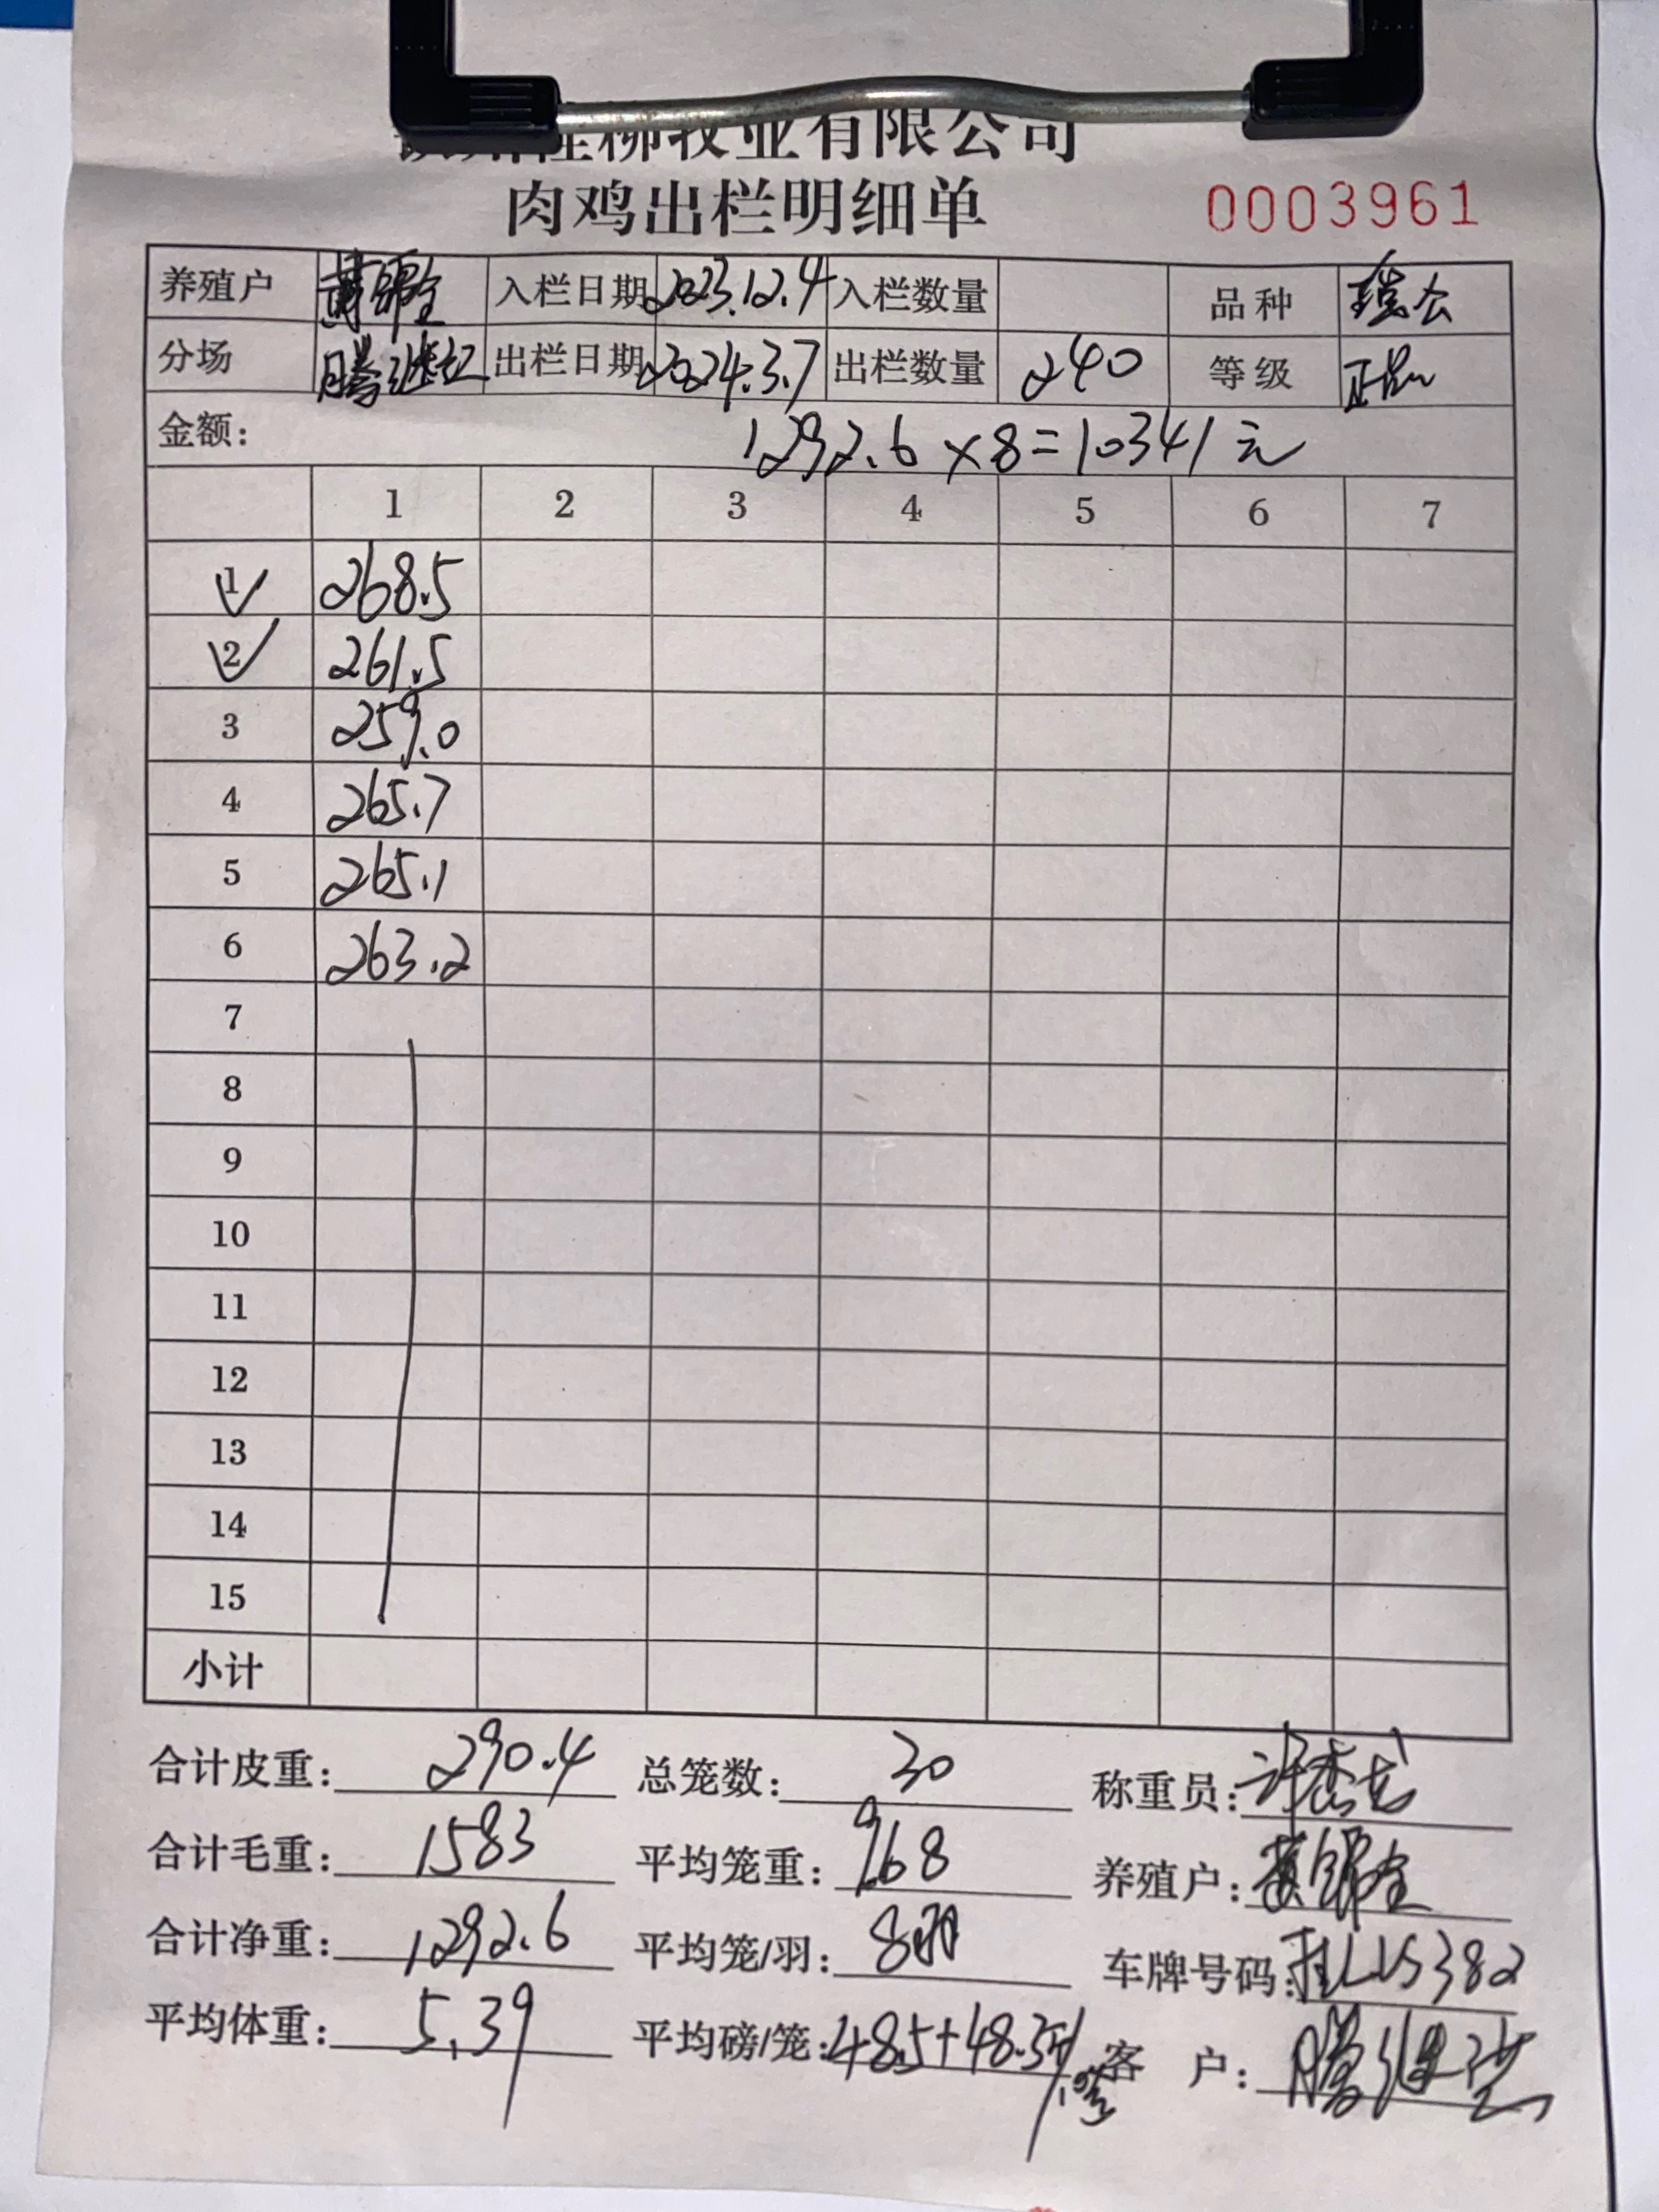 桂柳牧业有限公司
肉鸡出栏明细单 0003961
养殖户 黄锦全 入栏日期 2023.12.4 入栏数量 品种 瑶公
分场 滕继 出栏日期 2024.3.7 出栏数量 240 等级 正品
金额: 1292.6×8=10341元
1 2 3 4 5 6 7
1 268.5
2 261.5
3 259.0
4 265.7
5 265.1
6 263.2
7
8
9
10
11
12
13
14
15
小计
合计皮重: 290.4 总笼数: 30 称重员: 许杰龙
合计毛重: 1583 平均笼重: 9.68 养殖户: 黄锦全
合计净重: 1292.6 平均笼/羽: 8羽 车牌号码: 桂LLS382
平均体重: 5.39 平均磅/笼: 48.5+48.3 客 户: 滕继